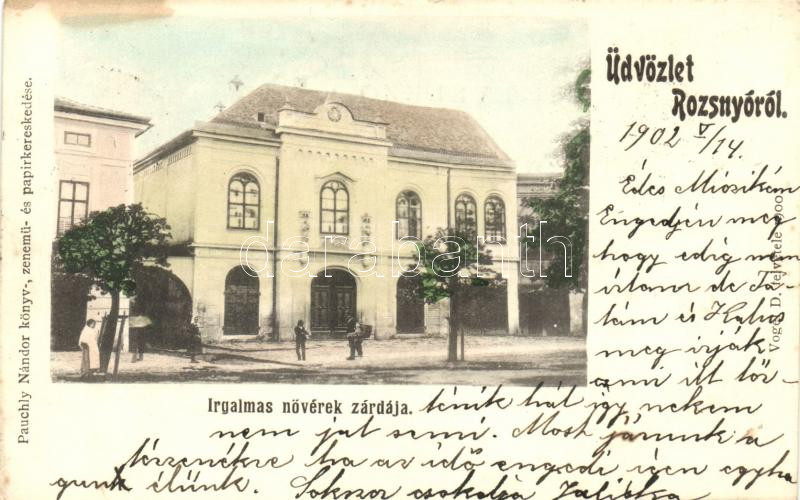 Üdvözlet
Rozsnyóról.
1902 V/14.
Édes Miózikém
Engedjén meg
hogy edig nem
írtam de Ta-
tám és
meg írják
ami itt tör-
ténik hát így nekem
nem jut semi. Most járunk a
térzenékre ha az idő engedi igen egyha
gun élünk. Sokszor csokolja
Irgalmas növérek zárdája.
Pauchly Nándor könyv-, zenemü- és papirkereskedése.
Vogel D. felvétele
darabanth